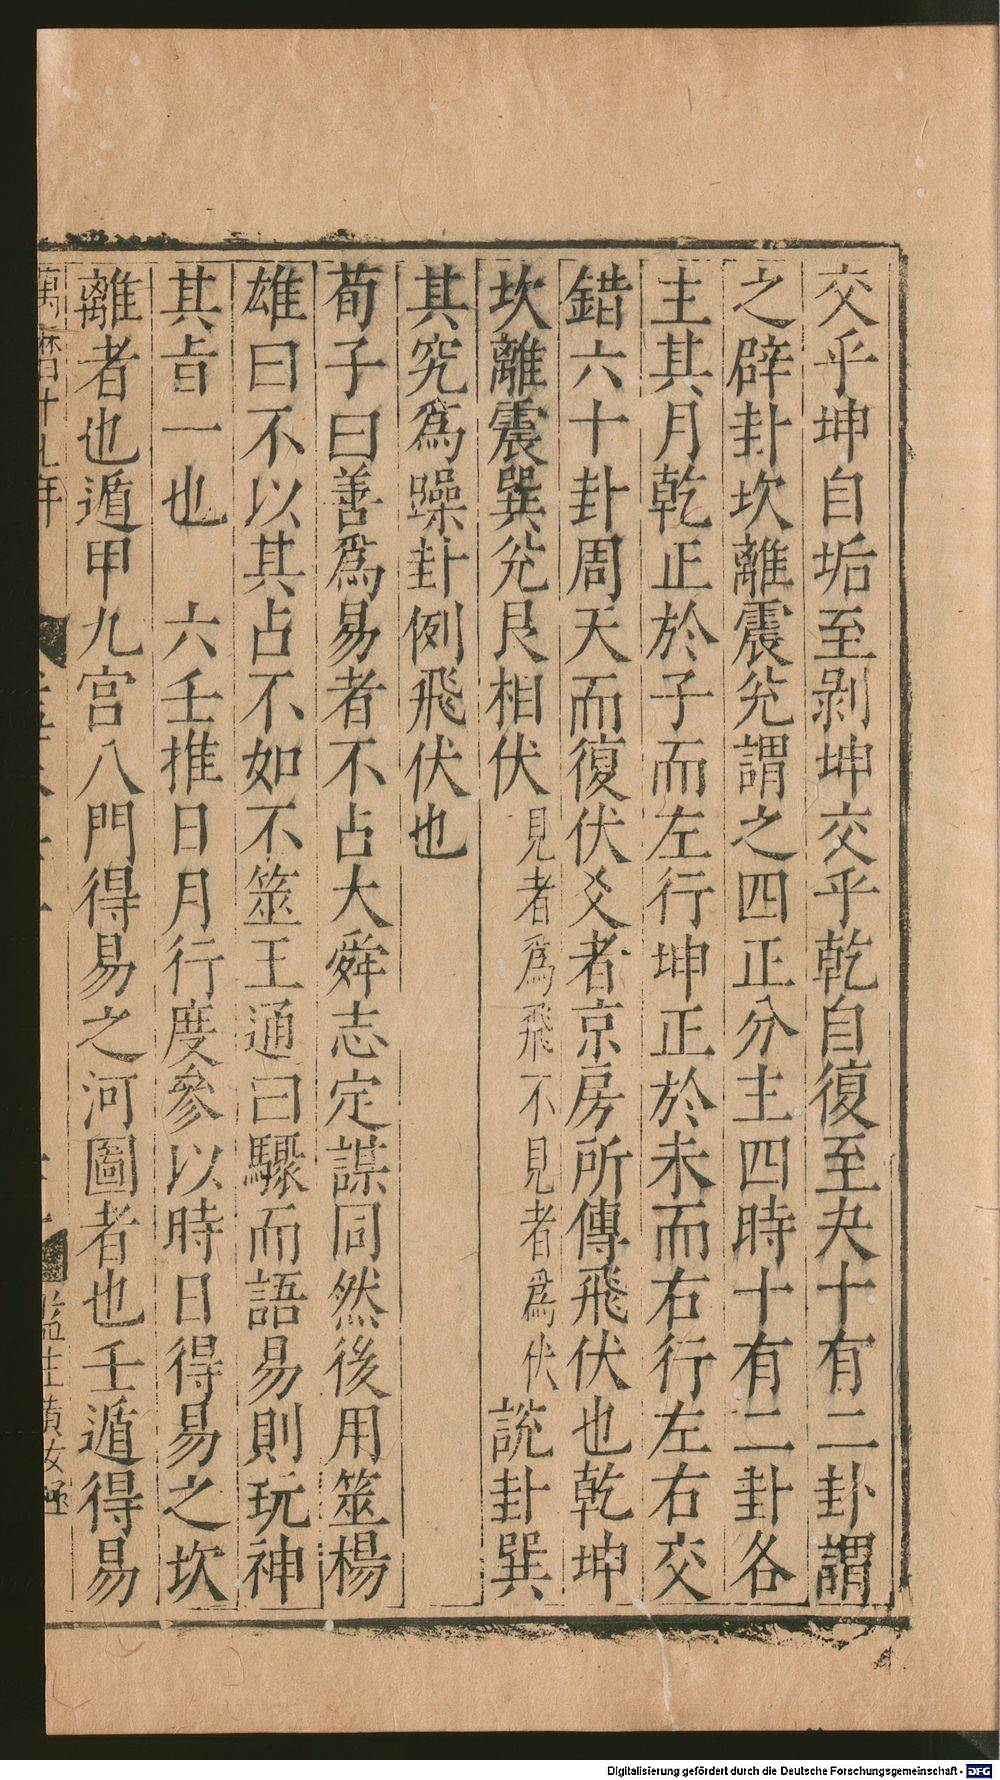 交乎坤自垢至剥坤交乎乾自復至夬十有二卦謂
之辟卦坎離震兊謂之四正分主四時十有二卦各
主其月乾正於子而左行坤正於未而右行左右交
錯六十卦周天而復伏爻者京房所傳飛伏也乾坤
坎離震巽兊艮相伏見者爲飛不見者爲伏說卦巽
其究爲躁卦例飛伏也
荀子曰善爲易者不占大舜志定謀同然後用筮楊
雄曰不以其占不如不筮王通曰驟而語易則玩神
其㫖一也　六壬推日月行度參以時日得易之坎
離者也遁甲九宫八門得易之河圖者也壬遁得易
萬曆十九年
Digitalisierung gefördert durch die Deutsche Forschungsgemeinschaft - DFG